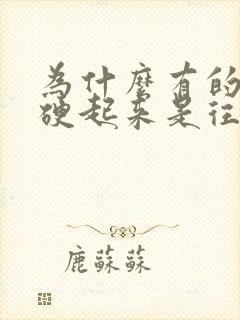 為什麼有的
硬起來是往
鹿蘇蘇